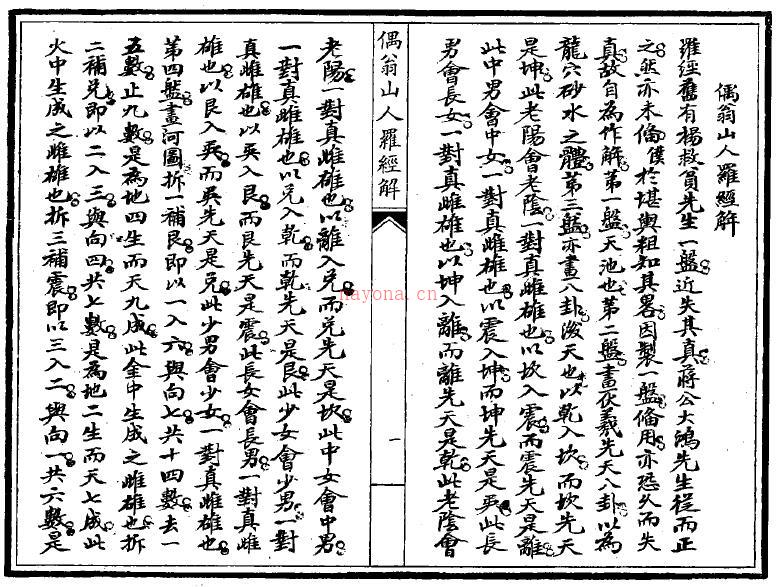 偶翁山人羅經解
羅經舊有楊救貧先生一盤近失其真蔣公大鴻先生從而正
之然亦未備僕於堪輿粗知其畧因製一盤備用亦恐久而失
真故自為作解第一盤天池也第二盤畫伏羲先天八卦以為
龍穴砂水之體第三盤亦畫八卦後天也以乾入坎而坎先天
是坤此老陽會老陰一對真雌雄也以坎入震而震先天是離
此中男會中女一對真雌雄也以震入坤而坤先天是巽此長
男會長女一對真雌雄也以坤入離而離先天是乾此老陰會
偶翁山人羅經解
一
老陽一對真雌雄也以離入兌而兌先天是坎此中女會中男
一對真雌雄也以兌入乾而乾先天是艮此少女會少男一對
真雌雄也以巽入艮而艮先天是震此長女會長男一對真雌
雄也以艮入巽而巽先天是兌此少男會少女一對真雌雄也
第四盤畫河圖拆一補艮即以一入六與向七共十四數去一
五數止九數是為地四生而天九成此金中生成之雌雄也拆
二補兌即以二入三與向四共七數是為地二生而天七成此
火中生成之雌雄也拆三補震即以三入二與向一共六數是
nayona.cn